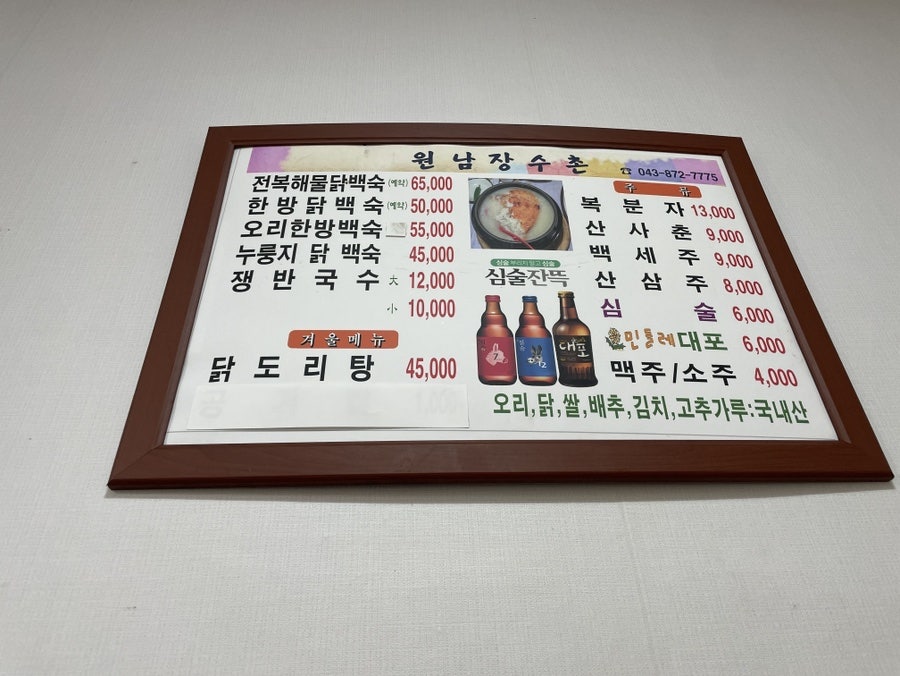 원남장수촌 ☎ 043-872-7775
전복해물닭백숙 (예약) 65,000
한방닭백숙 (예약) 50,000
오리한방백숙 55,000
누룽지 닭 백숙 45,000
쟁반국수 大 12,000
小 10,000
겨울메뉴
닭도리탕 45,000
공 1,000
심술 부리지 말고 심술
심술잔뜩
7
대포
주류
복분자 13,000
산사춘 9,000
백세주 9,000
산삼주 8,000
심술 6,000
민들레대포 6,000
맥주/소주 4,000
오리,닭,쌀,배추,김치,고추가루:국내산